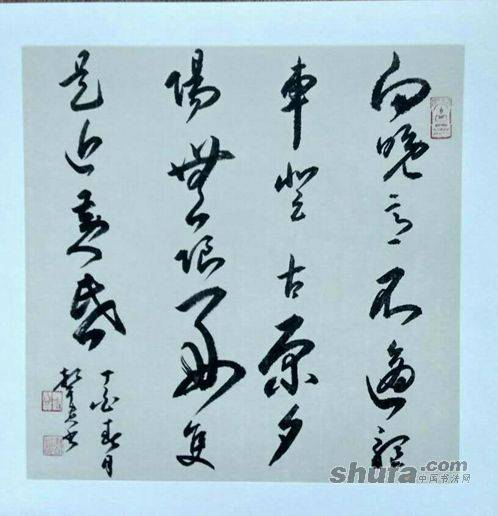 向晚意不適驅
車登古原夕
陽無限好隻
是近黃昏
丁酉春月
書
shufa.com
中国书法网